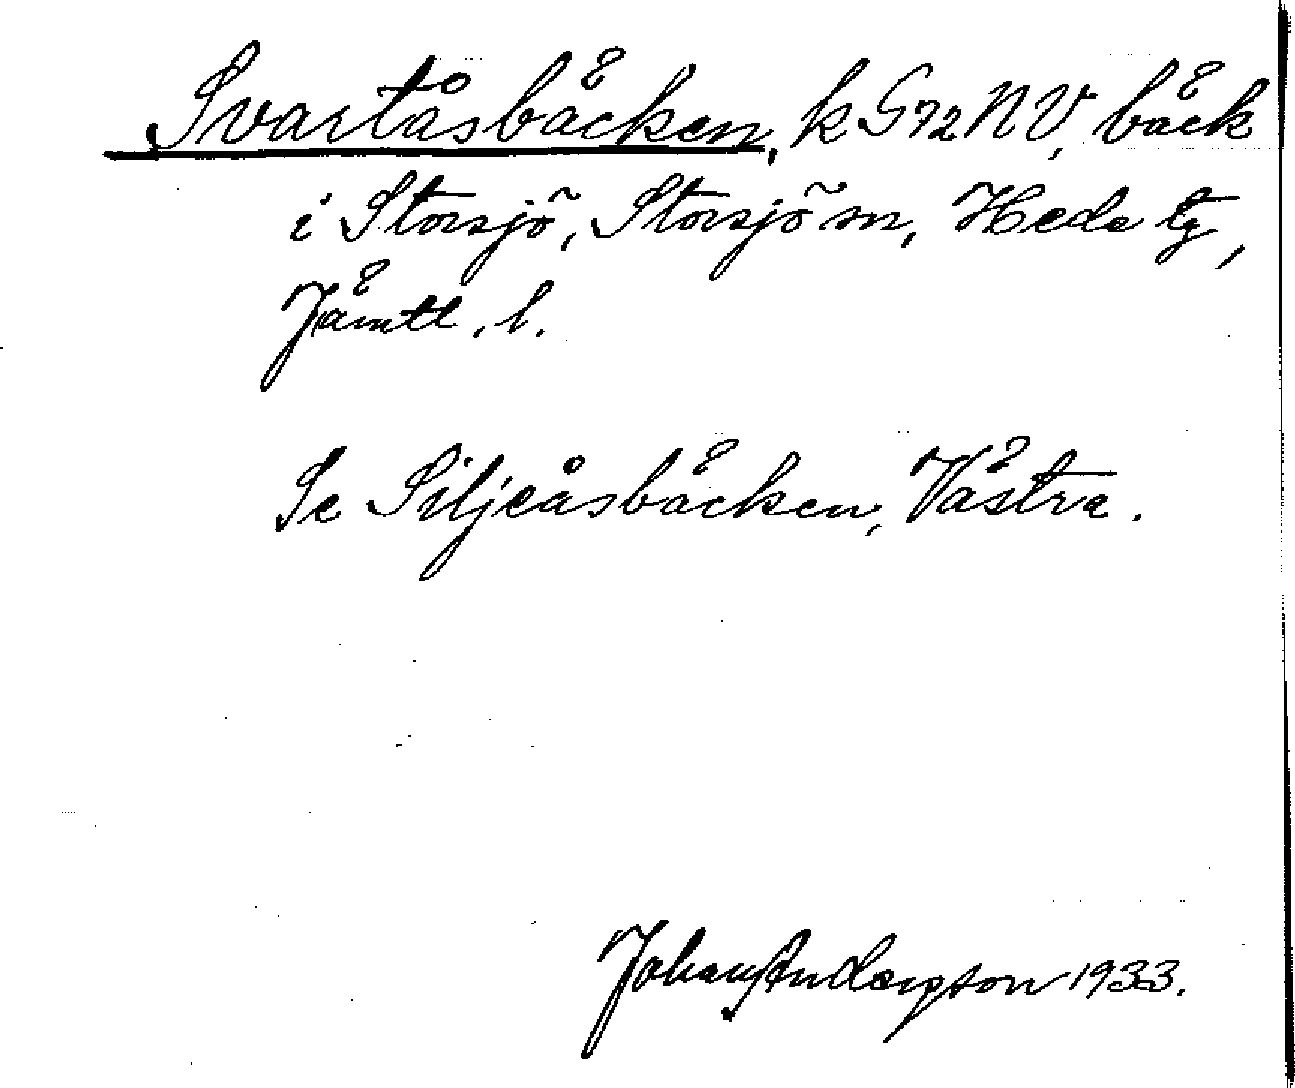 Svartåsbäcken, k G72NV, bäck
i Storsjö, Storsjö sn, Hede tg,
Jämtl. l.
Se Siljeåsbäcken, Västra.
Johan Andersson 1933.